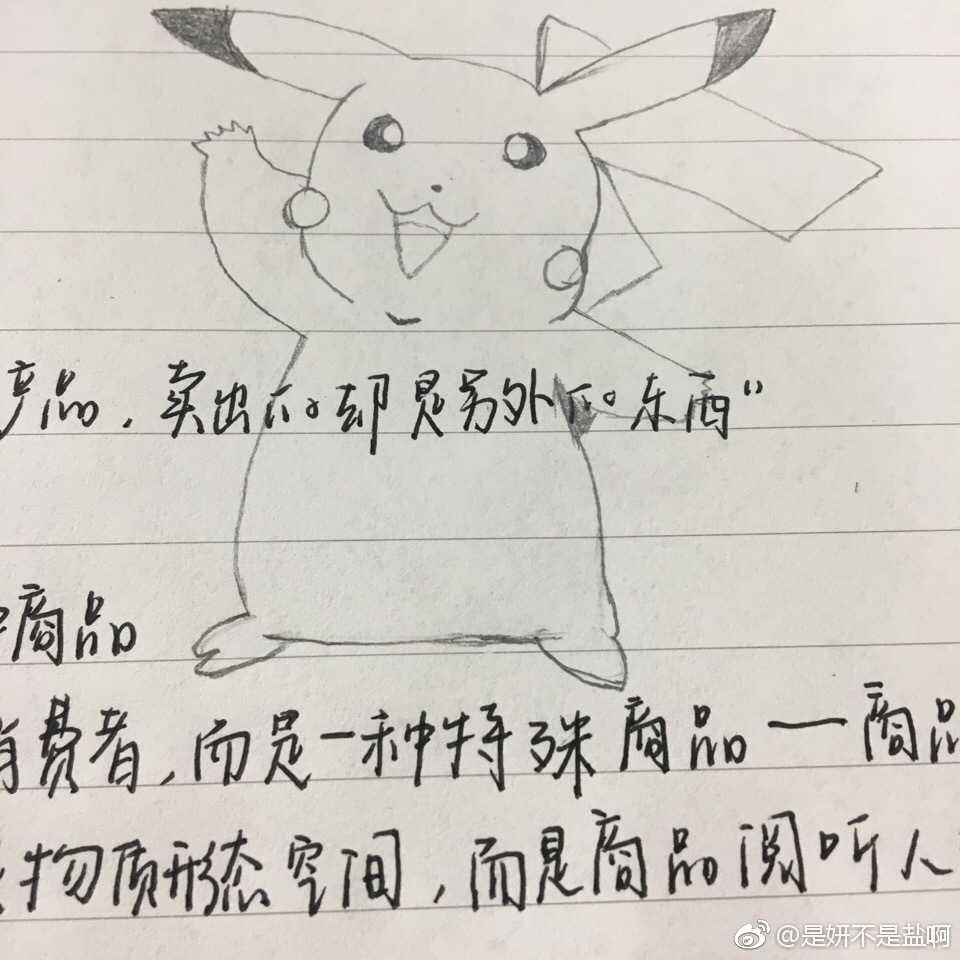 产品，卖出的却是另外的东西”
商品
消费者，而是一种特殊商品一商品
物质形态空间，而是商品阅听人
@是妍不是盐啊